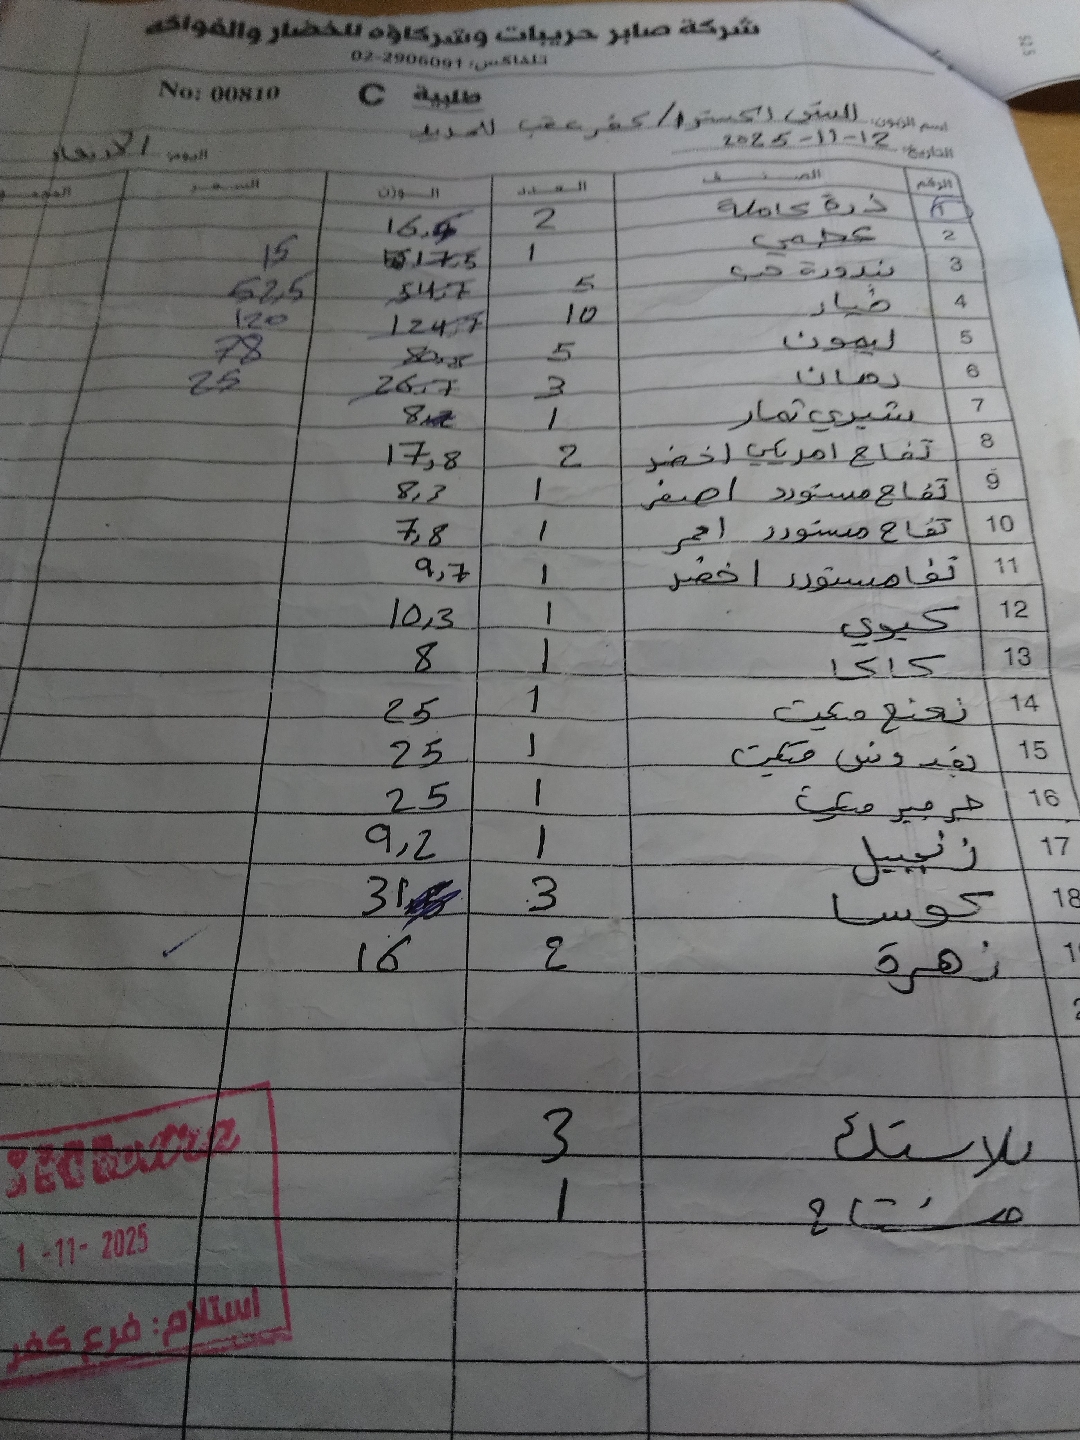 شركة صابر حريبات وشركاؤه للخضار والفواكه
تلفاكس: 02-2906091
No: 00810 طلبية C
اسم الزبون: اكسترا / كفر عقب الجديد
التاريخ: 2025-11-12 اليوم: الأربعاء
الرقم الصنف العدد الوزن السعر
1 ذرة كاملة 2
2 1 15
3 بندورة حب 5 54,7 52,5
4 خيار 10 124,7 120
5 ليمون 5 78
6 رمان 3 26,7 25
7 شيري تمار 1
8 تفاح امريكي اخضر 2 17,8
9 تفاح مستورد اصفر 1 8,3
10 تفاح مستورد احمر 1 7,8
11 تفا مستورد اخضر 1 9,7
12 كيوي 1 10,3
13 كاكا 1 8
14 نعنع مكيت 1 25
15 بقدونس مكيت 1 25
16 جرجير مكيت 1 25
17 زنجبيل 1 9,2
18 كوسا 3 31
زهرة 2 16
بلاستك 3
مشتاح 1
-11- 2025
استلام: فرع كفر